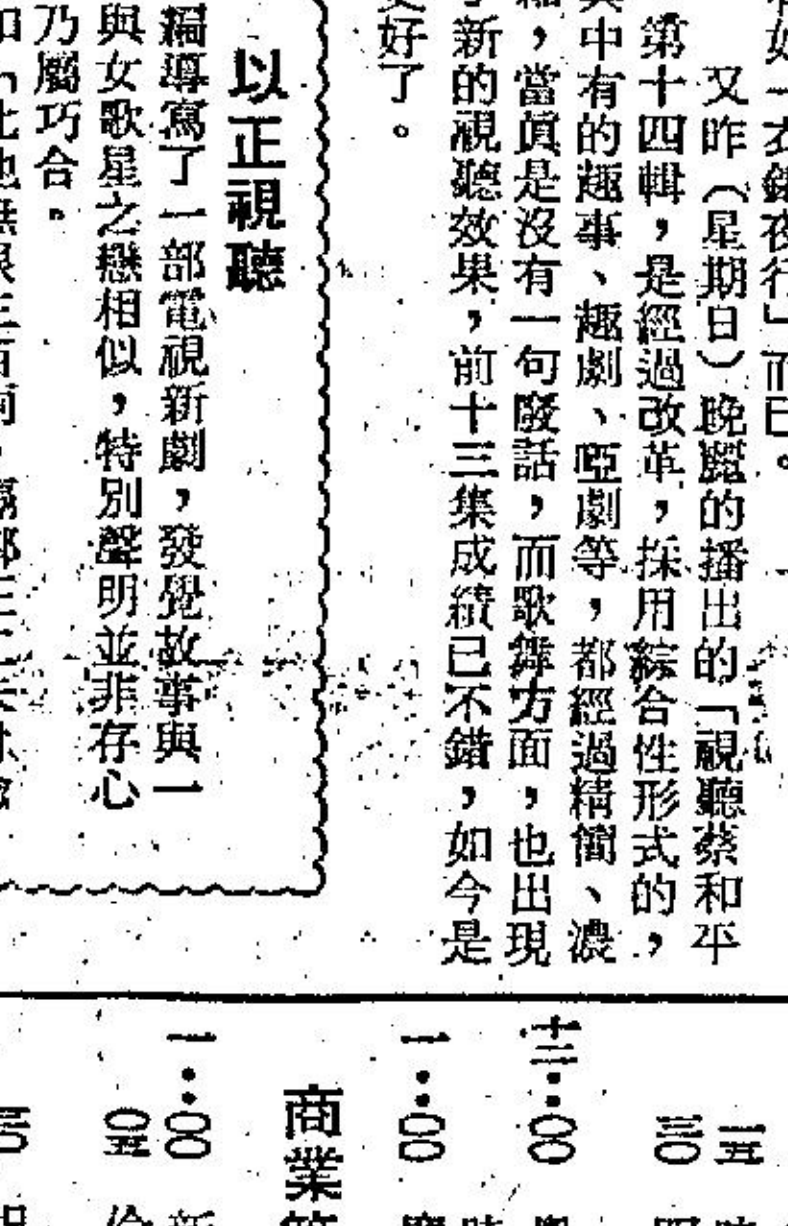 夜行」而已。
又昨（星期日）晚趕的播出的「視聽蔡和平
第十四輯，是經過改革，採用綜合性形式的，
其中有的趣事、趣劇、啞劇等，都經過精簡、濃
當眞是沒有一句廢話，而歌舞方面，也出現
新的視聽效果，前十三集成績已不錯，如今是
更好了。
以正視聽
編導寫了一部電視新劇，發覺故事與一
與女歌星之戀相似，特別聲明並非存心
乃屬巧合。
一五
三〇
十二：〇〇
一：〇〇
商業
一：〇〇
〇五